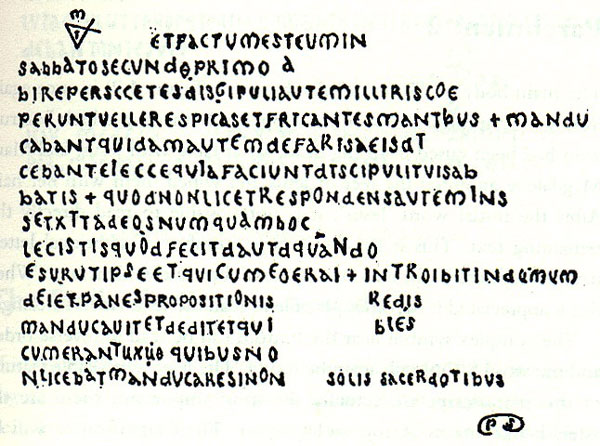 ETFACTUMESTEUMIN
SABBATOSECUNDOPRIMO A
BIREPERSCCETESDISGIPULIAUTEMILLITRISCOE
PERUNTVELLERESPICASETFRICANTESMANTBUS + MANDU
CABANTQUIDAMAUTEMDEFARISAEISDT
CEBANTELECCEQUIAFACIUNTDTSCIPULITVISAB
BATIS + QUODNONLICETRESPONDENSAUTEMINS
SETXTTADEOSNUMQUAMBOC
LECISTISQUODFECITDAUTDQUANDO
ESURUTIPSEETQUICUMEOERAI + INTROIBITINDOMUM
DEIETPANESPROPOSITIONIS REDIS
MANDUCAUITETDEDITETQUI BLES
CUMERANTUXUO QUIBUSNO
NLICEBATMANDUCARESINON SOLIS SACERDOTIBUS
PS